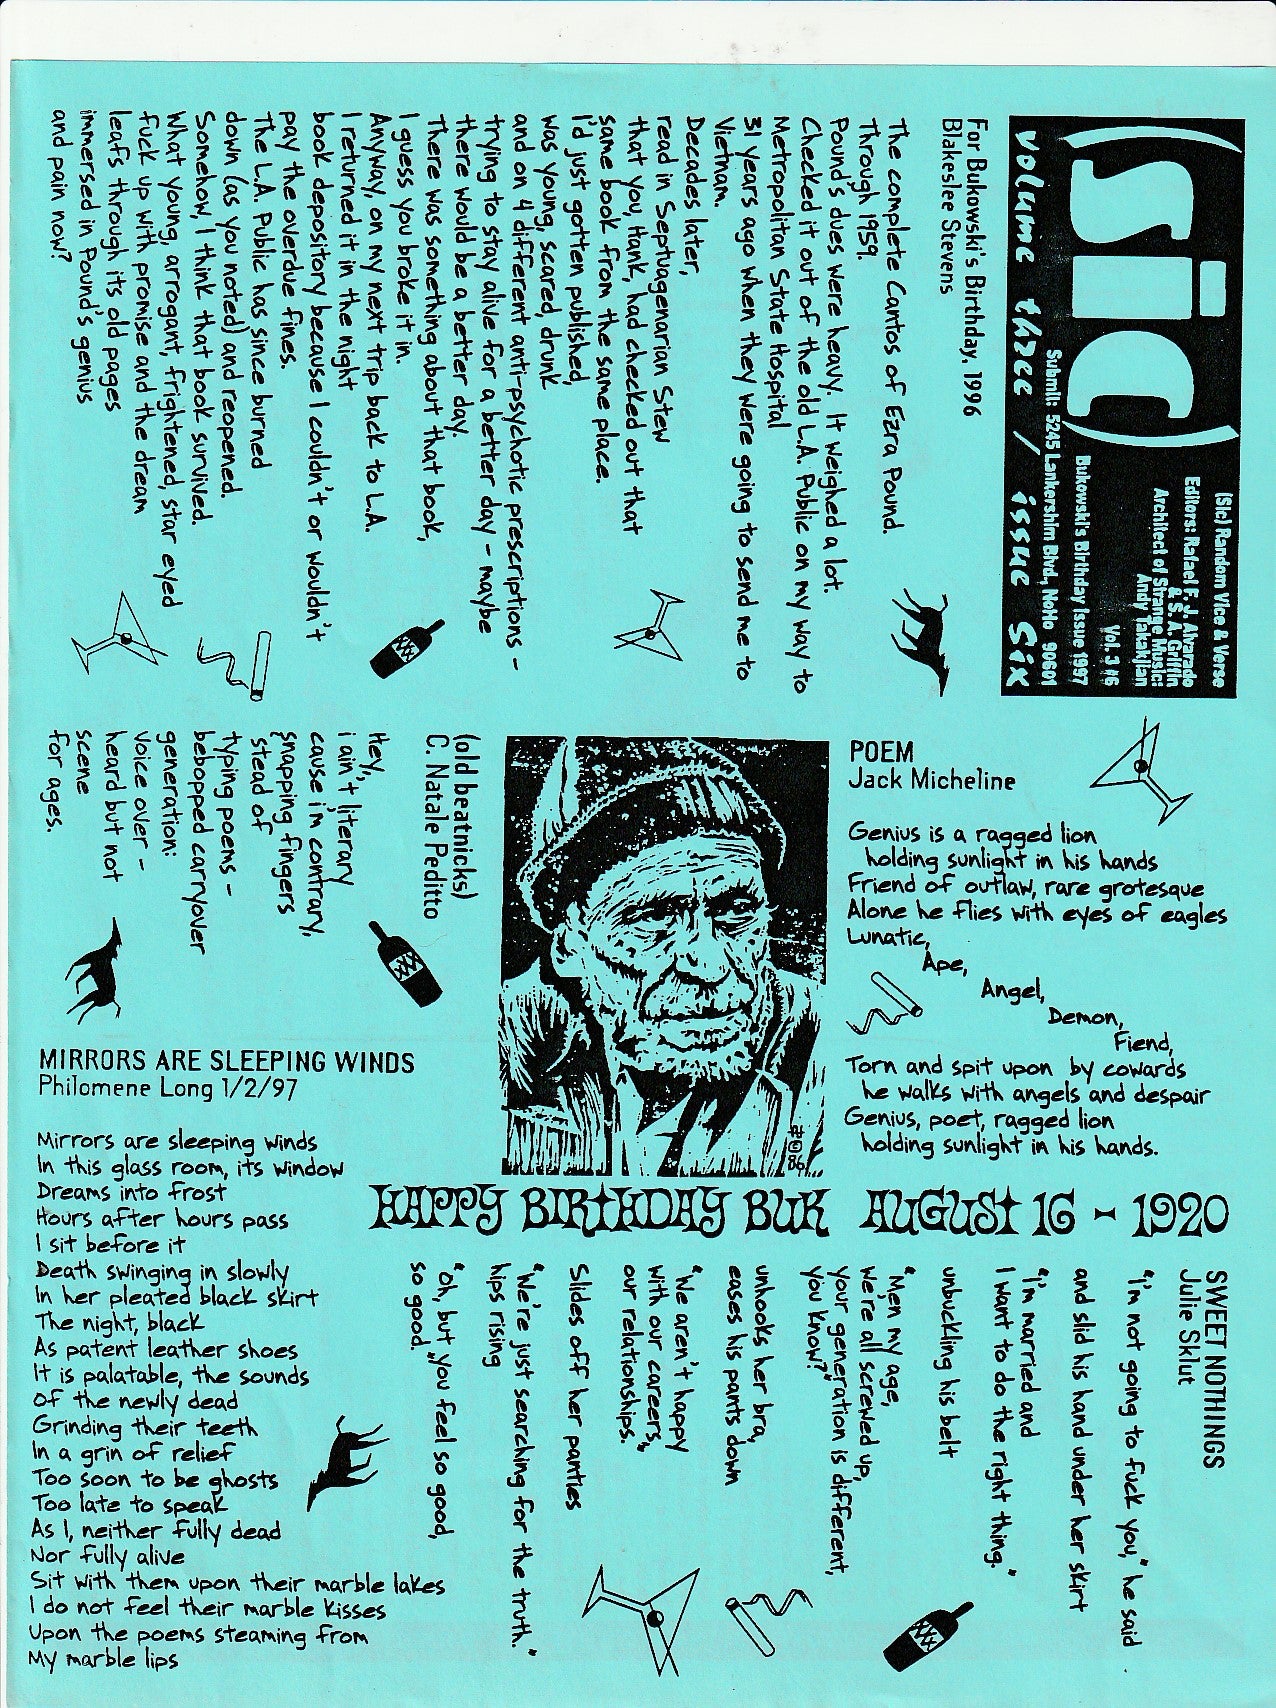 (sic)
volume three / issue six
(Sic) Random Vice & Verse
Editors: Rafael F. J. Alvarado
& S. A. Griffin
Architect of Strange Music:
Andy Takakjian
Vol. 3 #6
Bukowski's Birthday Issue 1997
Submit: 5245 Lankershim Blvd., NoHo 90601
For Bukowski's Birthday, 1996
Blakeslee Stevens
The complete Cantos of Ezra Pound.
Through 1959.
Pound's dues were heavy. It weighed a lot.
Checked it out of the old L.A. Public on my way to
Metropolitan State Hospital
31 years ago when they were going to send me to
Vietnam.
Decades later,
read in Septuagenarian Stew
that you, Hank, had checked out that
same book from the same place.
I'd just gotten published,
was young, scared, drunk
and on 4 different anti-psychotic prescriptions -
trying to stay alive for a better day - maybe
there would be a better day.
There was something about that book,
I guess you broke it in.
Anyway, on my next trip back to L.A.
I returned it in the night
book depository because I couldn't or wouldn't
pay the overdue fines.
The L.A. Public has since burned
down (as you noted) and reopened.
Somehow, I think that book survived.
What young, arrogant, frightened, star eyed
fuck up with promise and the dream
leafs through its old pages
immersed in Pound's genius
and pain now?
POEM
Jack Micheline
Genius is a ragged lion
holding sunlight in his hands
Friend of outlaw, rare grotesque
Alone he flies with eyes of eagles
Lunatic,
Ape,
Angel,
Demon,
Fiend,
Torn and spit upon by cowards
he walks with angels and despair
Genius, poet, ragged lion
holding sunlight in his hands.
© 86
(old beatnicks)
C. Natale Peditto
Hey,
i ain't literary
cause i'm contrary,
snapping fingers
stead of
typing poems -
bebopped carryover
generation:
voice over -
heard but not
scene
for ages.
HAPPY BIRTHDAY BUK AUGUST 16 - 1920
MIRRORS ARE SLEEPING WINDS
Philomene Long 1/2/97
Mirrors are sleeping winds
In this glass room, its window
Dreams into frost
Hours after hours pass
I sit before it
Death swinging in slowly
In her pleated black skirt
The night, black
As patent leather shoes
It is palatable, the sounds
Of the newly dead
Grinding their teeth
In a grin of relief
Too soon to be ghosts
Too late to speak
As I, neither fully dead
Nor fully alive
Sit with them upon their marble lakes
I do not feel their marble kisses
Upon the poems steaming from
My marble lips
SWEET NOTHINGS
Julie Sklut
"I'm not going to fuck you," he said
and slid his hand under her skirt
"I'm married and
I want to do the right thing."
unbuckling his belt
"Men my age,
we're all screwed up,
your generation is different,
you know?"
unhooks her bra,
eases his pants down
"We aren't happy
with our careers,
our relationships.
Slides off her panties
"We're just searching for the truth."
hips rising
"Oh, but you feel so good,
so good."